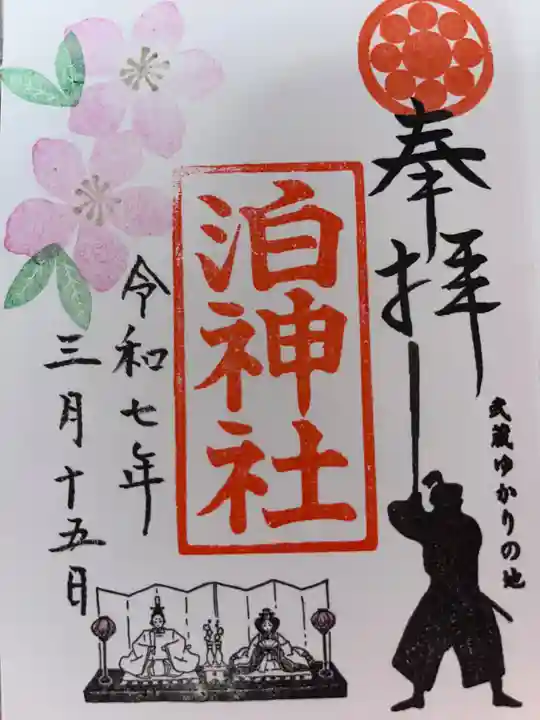 奉拝
武蔵ゆかりの地
泊神社
令和七年
三月十五日